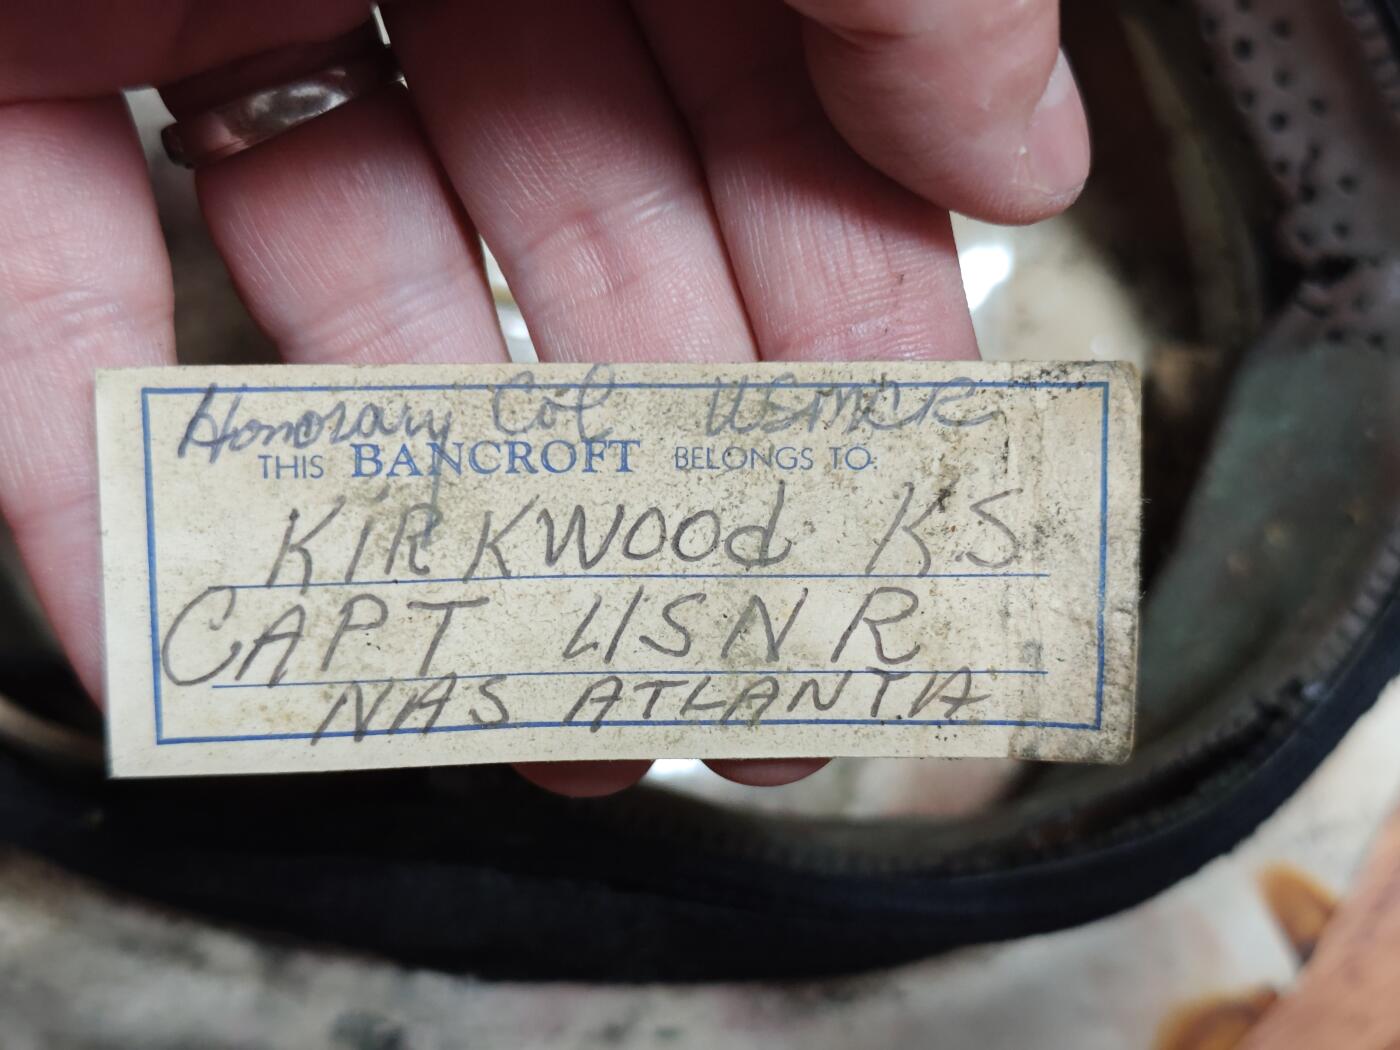 Honorary Col USMCR
THIS BANCROFT BELONGS TO:
KIRKWOOd K.S
CAPT USNR
NAS ATLANTA